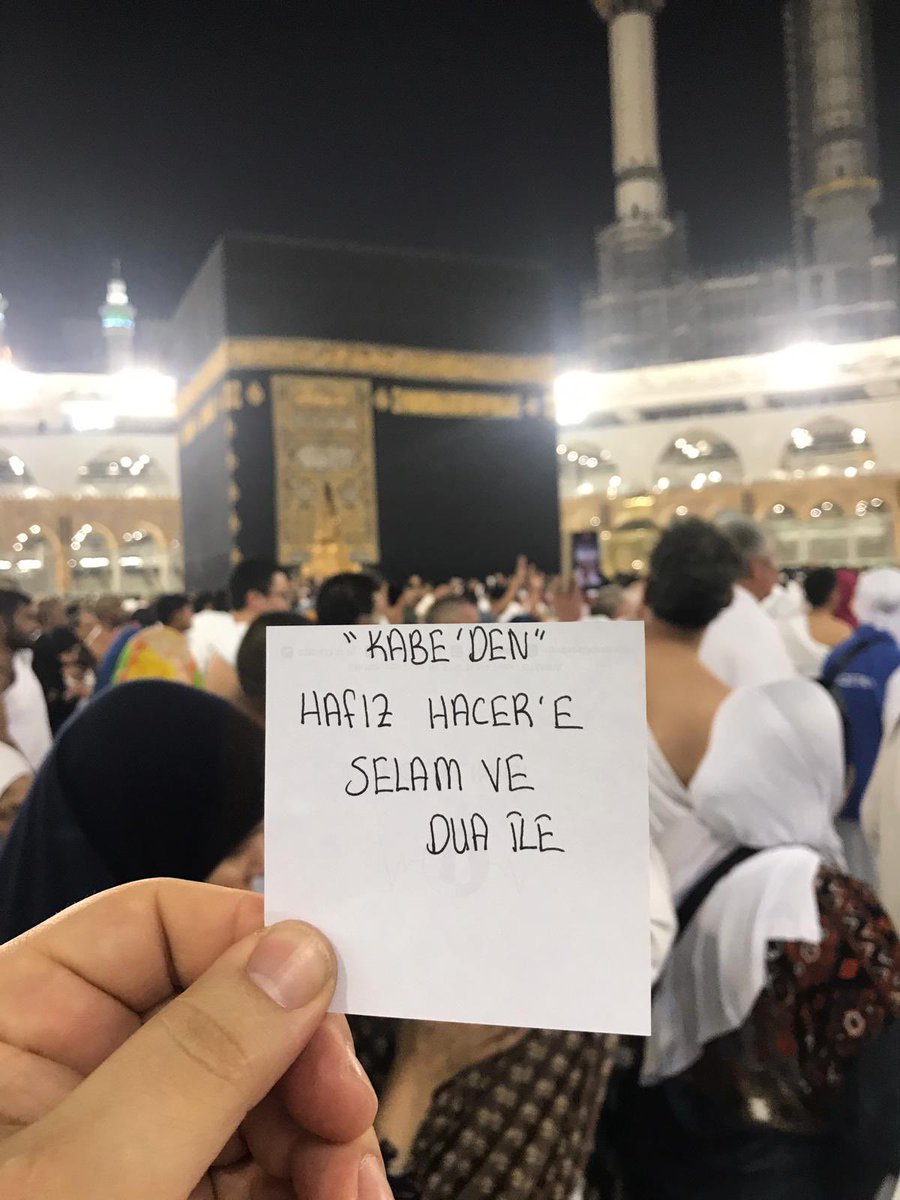 "KABE'DEN"
HAFIZ HACER'E
SELAM VE
DUA İLE